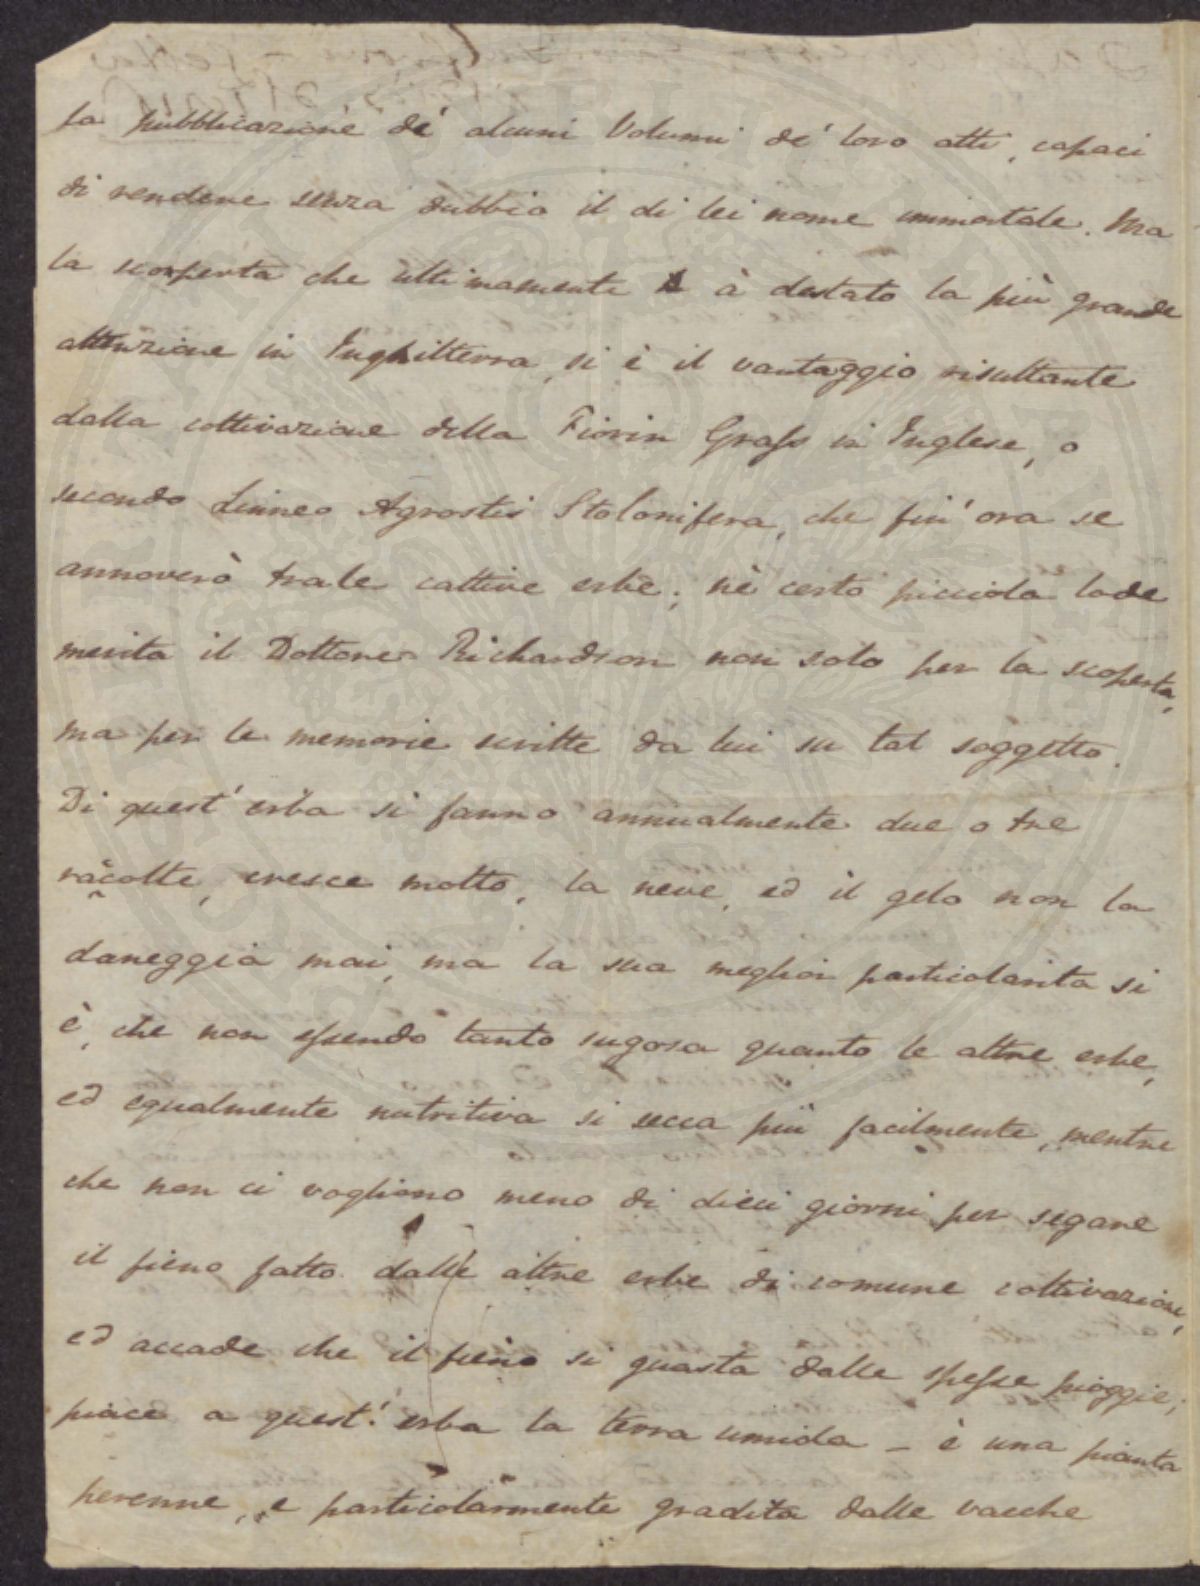 la pubblicazione dè alcuni Volumi de' loro atti, capaci
di rendere senza dubbio il di lei nome immortale. Ma
la scoperta che ultimamente à destato la più grande
attenzione in Inghilterra, si è il vantaggio risultante
dalla coltivazione della Fiorin Grass in Inglese, o
secondo Linneo Agrostis Stolonifera, che fin' ora se
annoverò trale cattive erbe; nè certo picciola lode
merita il Dottore Richardson non solo per la scoperta,
ma per le memorie scritte da lui su tal soggetto.
Di quest' erba si fanno annualmente due o tre
racolte, cresce molto, la neve, ed il gelo non la
daneggia mai, ma la sua meglior particolarita si
è, che non essendo tanto sugosa quanto le altre erbe,
ed egualmente nutritiva si secca più facilmente, mentre
che non ci vogliono meno di dieci giorni per segare
il fieno fatto dalle altre erbe di comune coltivazione,
ed accade che il fieno si guasta dalle spesse pioggie;
piace a quest' erba la terra umida – è una pianta
perenne, e particolarmente gradita dalle vacche